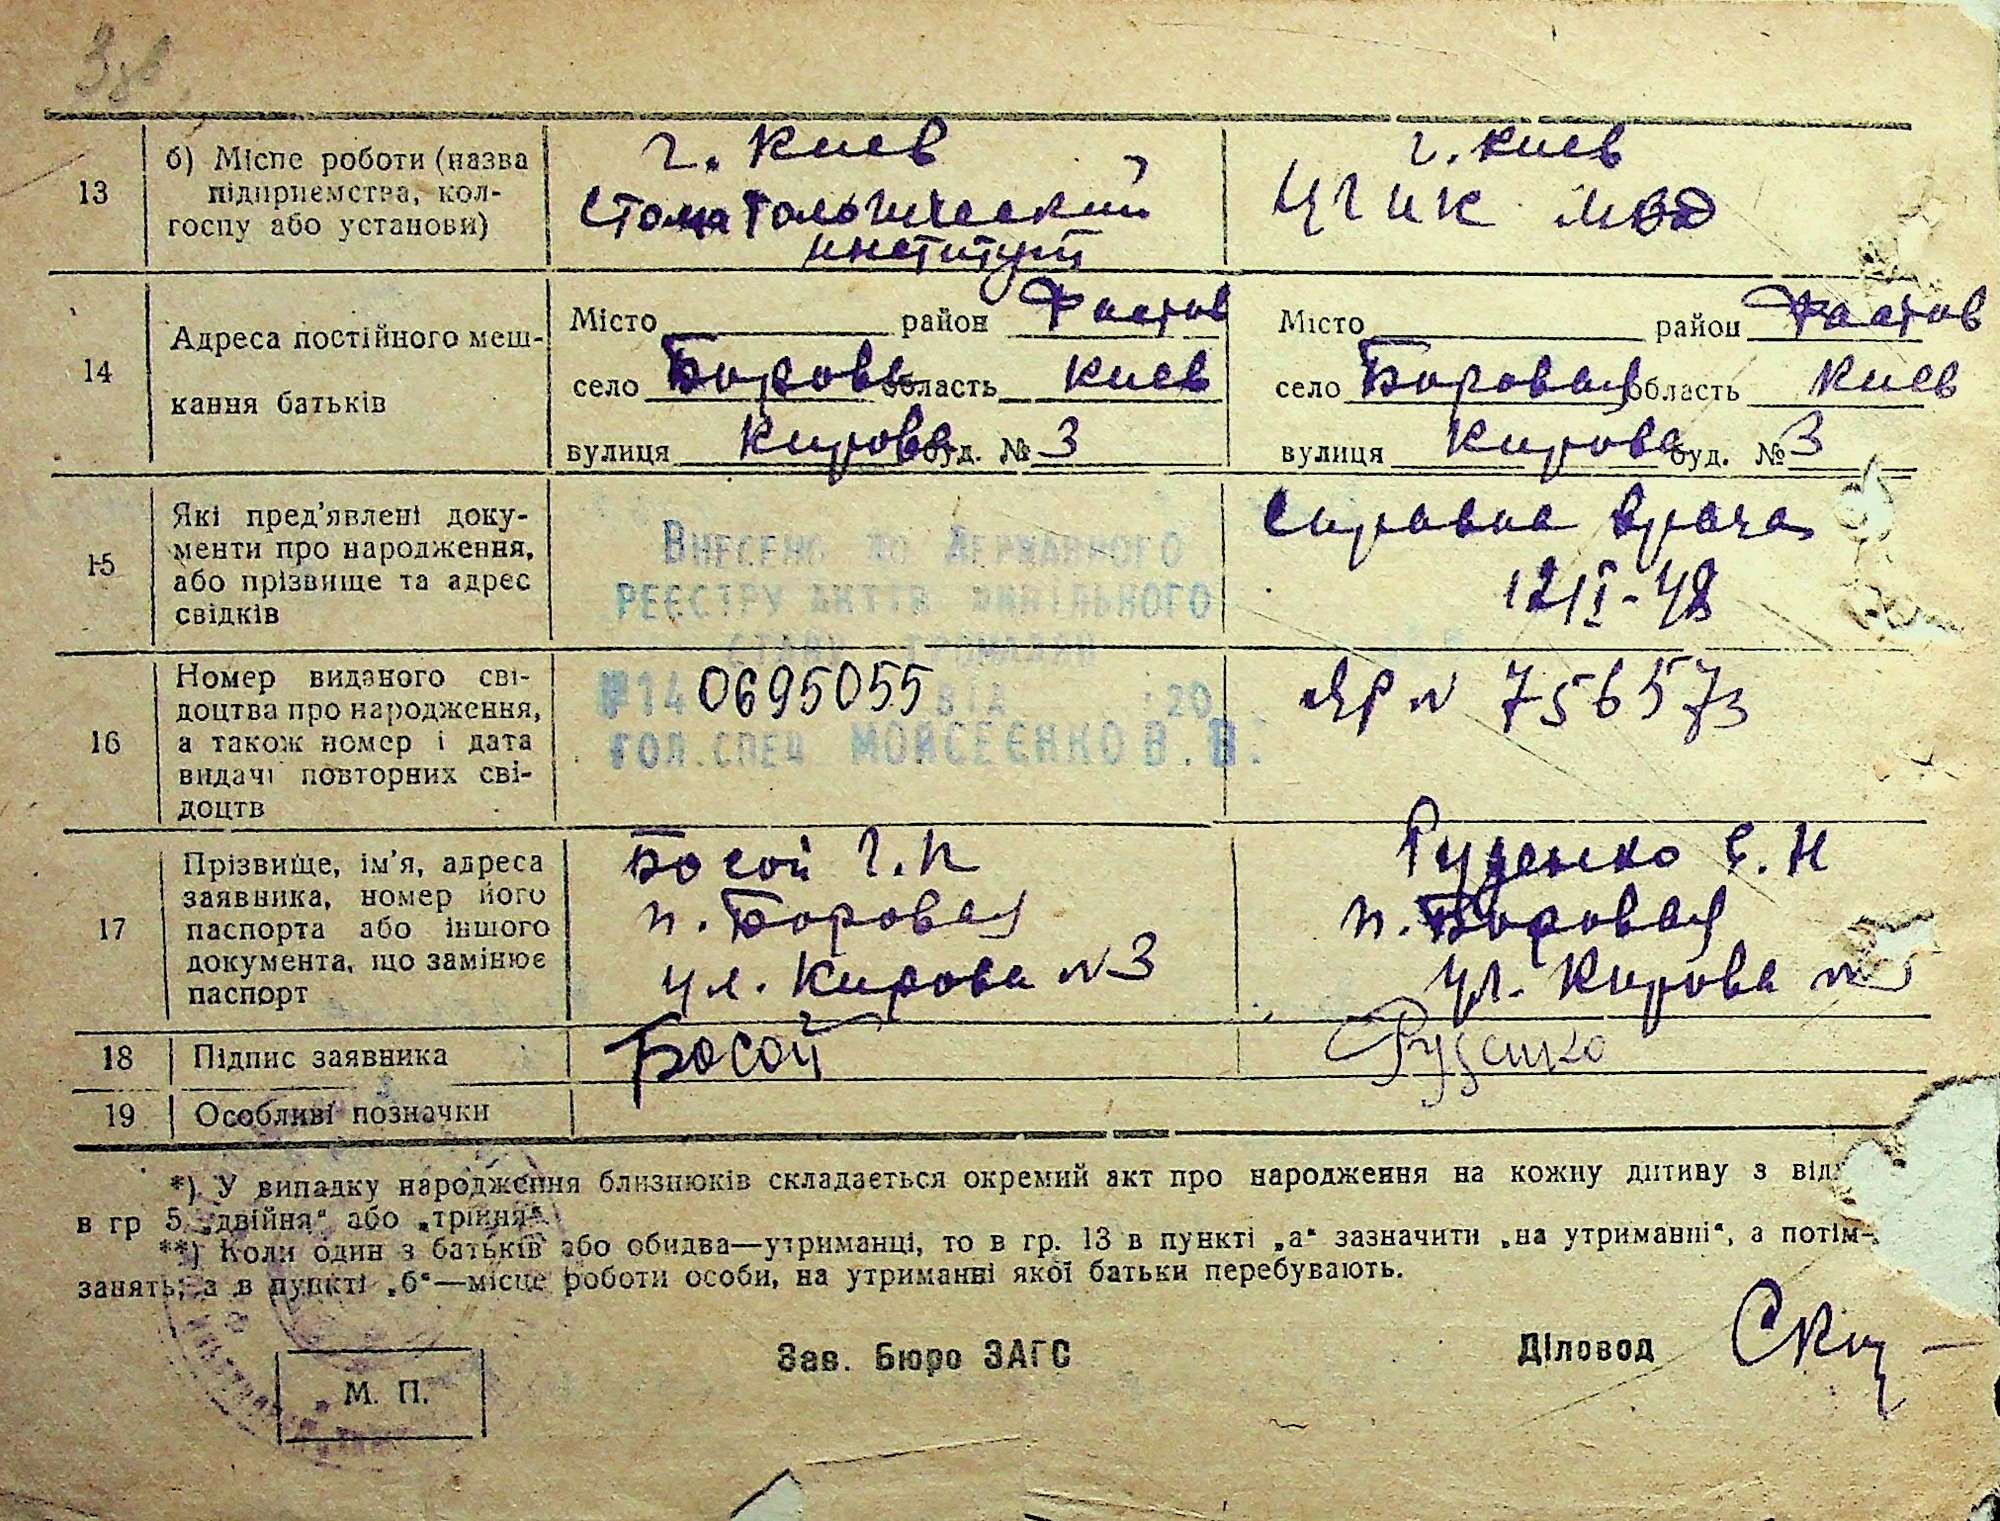 13
б) Місце роботи (назва
підприємства, кол-
госпу або установи)
г. Киев
Стоматологический
институт
г. Киев
ЦГИК МВД
14
Адреса постійного меш-
кання батьків
Місто район Фастов
село Боровая область Киев
вулиця Кирова буд. № 3
Місто район Фастов
село Боровая область Киев
вулиця Кирова буд. № 3
15
Які пред'явлені доку-
менти про народження,
або прізвище та адрес
свідків
Справка врача
12/I-48
Внесено до Державного
реєстру актів цивільного
стану громадян
№14 0695055 від 20
гол. спец Мойсеєнко В. В.
16
Номер виданого сві-
доцтва про народження,
а також номер і дата
видачі повторних сві-
доцтв
ЯР N 756573
17
Прізвище, ім'я, адреса
заявника, номер його
паспорта або іншого
документа, що замінює
паспорт
Босой Г. П
п. Боровая
ул. Кирова N 3
Руденко Е. Н
п. Боровая
ул. Кирова N
18
Підпис заявника
Босой
Руденко
19
Особливі позначки
*) У випадку народження близнюків складається окремий акт про народження на кожну дитину з
в гр 5 „двійня“ або „трійня“.
**) Коли один з батьків або обидва—утриманці, то в гр. 13 в пункті „а“ зазначити „на утриманні“, а потім
занять; а в пункті „б“—місце роботи особи, на утриманні якої батьки перебувають.
Зав. Бюро ЗАГС
Діловод
М. П.